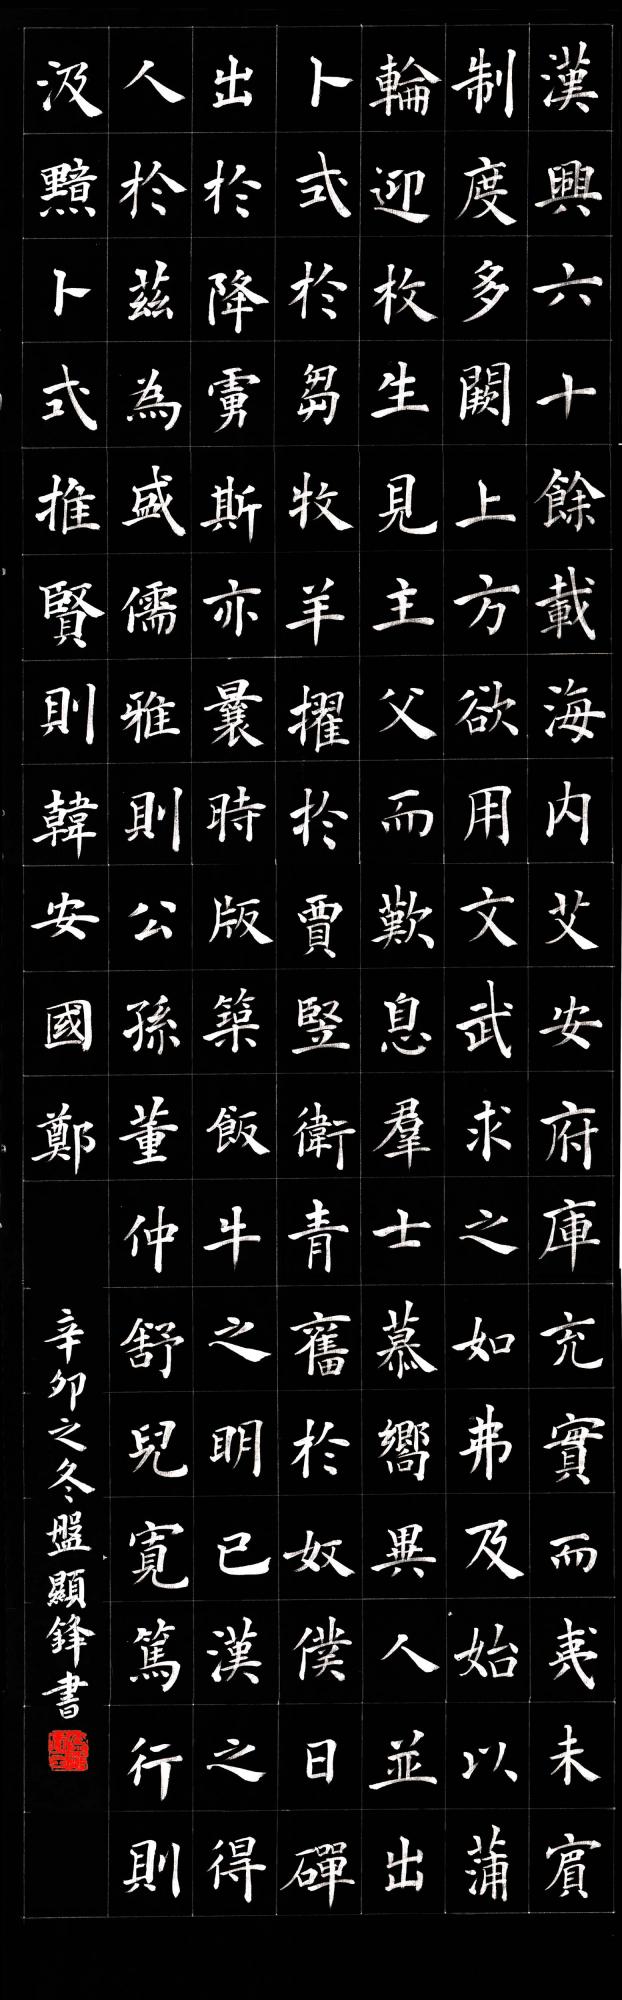 漢興六十餘載海内艾安府庫充實而夷未賓
制度多闕上方欲用文武求之如弗及始以蒲
輪迎枚生見主父而歎息羣士慕嚮異人並出
卜式於芻牧羊擢於賈豎衛青奮於奴僕日磾
出於降虜斯亦曩時版築飯牛之明已漢之得
人於茲為盛儒雅則公孫董仲舒兒寬篤行則
汲黯卜式推賢則韓安國鄭
辛卯之冬盤顯鋒書